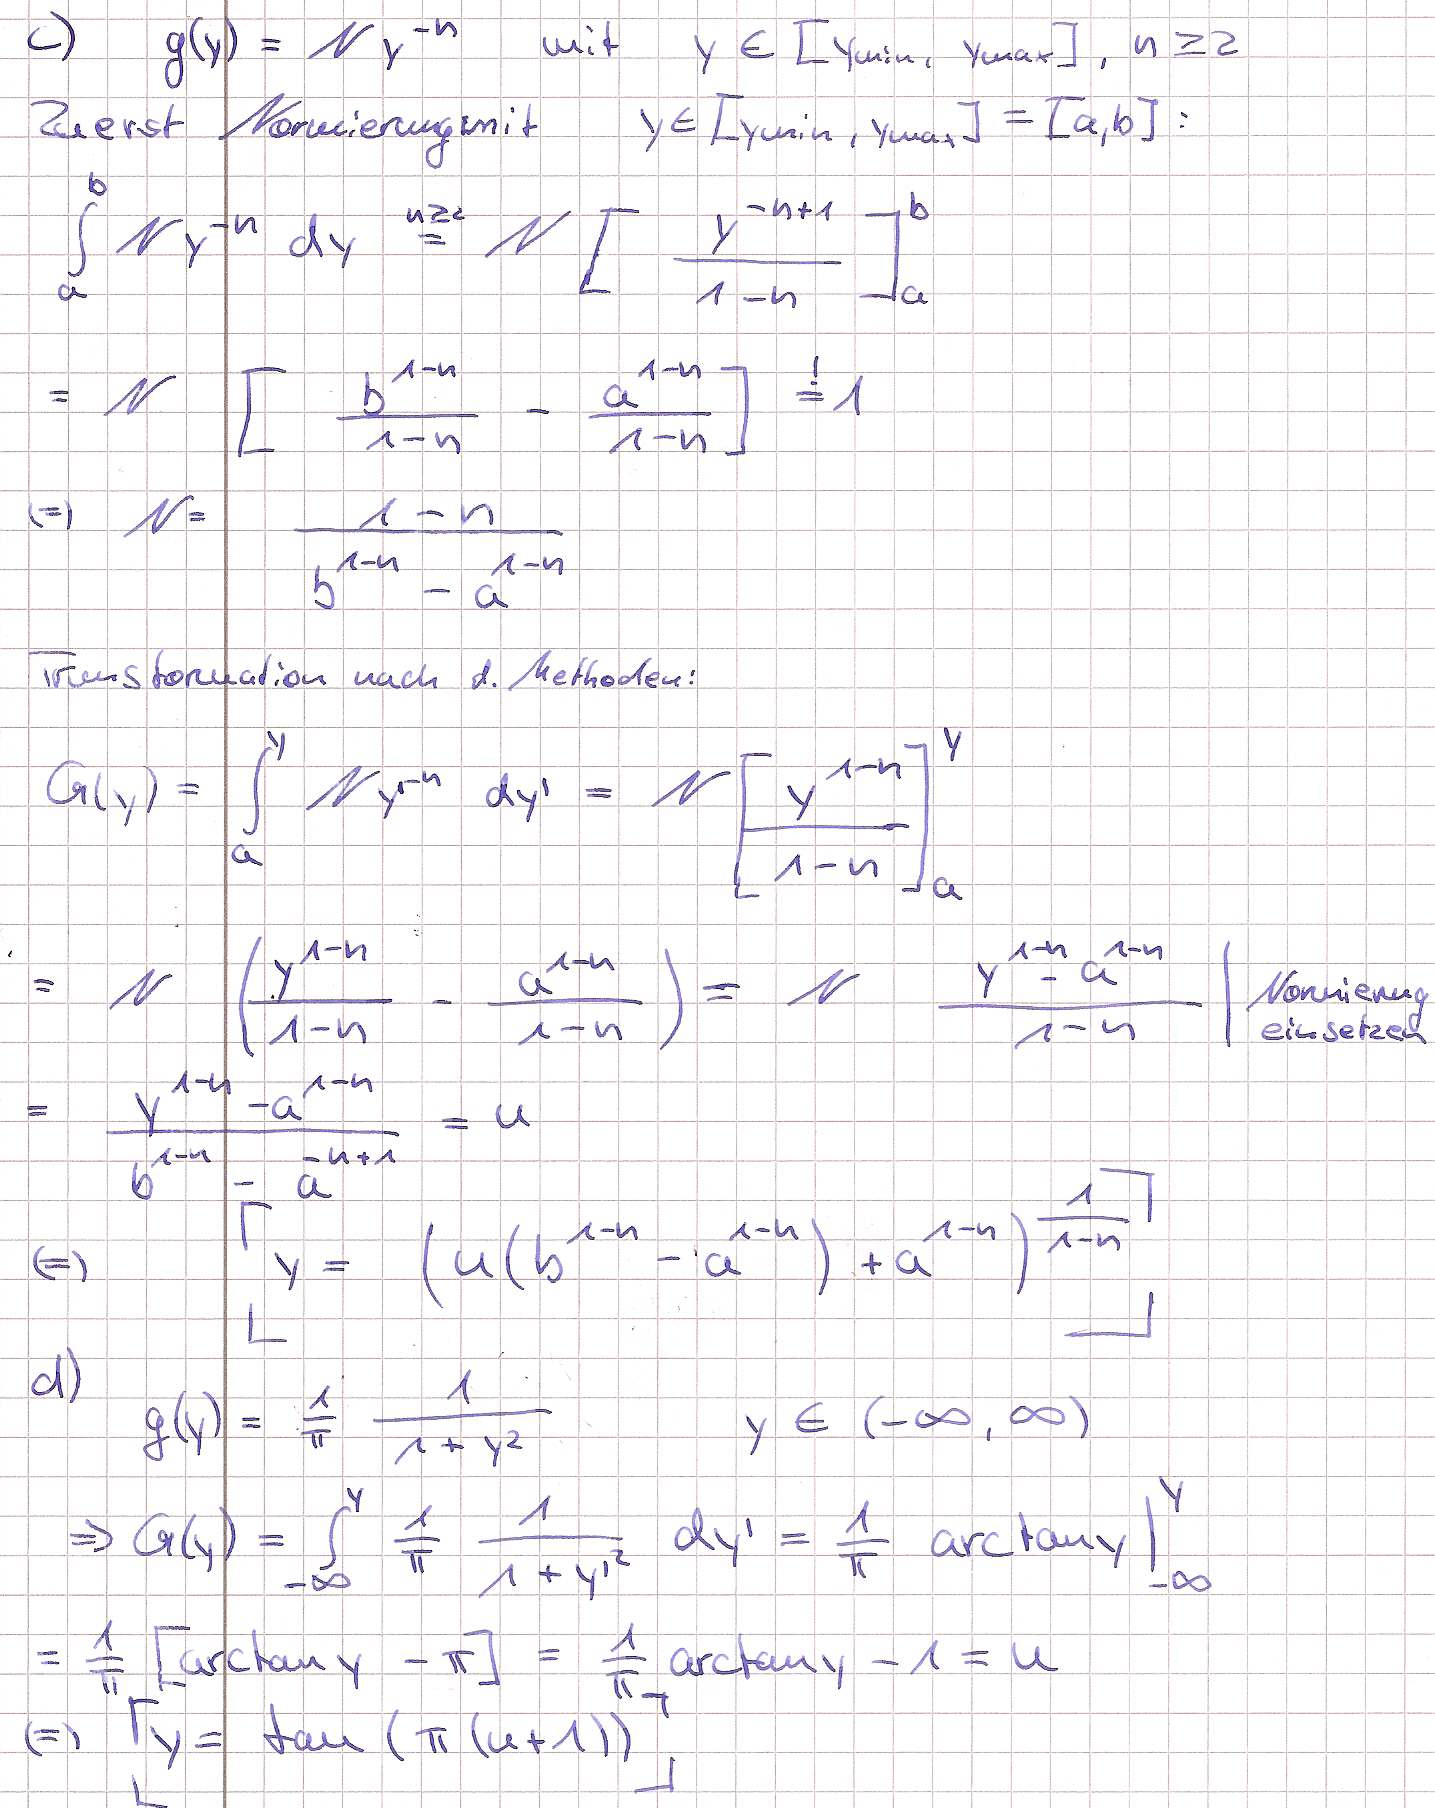 c) g(y) = N y^{-n} mit y ∈ [y_{min}, y_{max}], n ≥ 2
Zuerst Normierung mit y ∈ [y_{min}, y_{max}] = [a,b]:
∫_a^b N y^{-n} dy =^{n≥2} N [ y^{-n+1} / (1-n) ]_a^b
= N [ b^{1-n} / (1-n) - a^{1-n} / (1-n) ] =^! 1
(=) N = (1-n) / (b^{1-n} - a^{1-n})
Transformation nach d. Methoden:
G(y) = ∫_a^y N y'^{-n} dy' = N [ y^{1-n} / (1-n) ]_a^y
= N ( y^{1-n} / (1-n) - a^{1-n} / (1-n) ) = N (y^{1-n} - a^{1-n}) / (1-n) | Normierung einsetzen
= (y^{1-n} - a^{1-n}) / (b^{1-n} - a^{-n+1}) = u
(=) [ y = (u(b^{1-n} - a^{1-n}) + a^{1-n})^{1/(1-n)} ]
d) g(y) = 1/π 1/(1+y^2) y ∈ (-∞, ∞)
⇒ G(y) = ∫_{-∞}^y 1/π 1/(1+y'^2) dy' = 1/π arctan y |_{-∞}^y
= 1/π [arctan y - π] = 1/π arctan y - 1 = u
(=) [ y = tan (π(u+1)) ]